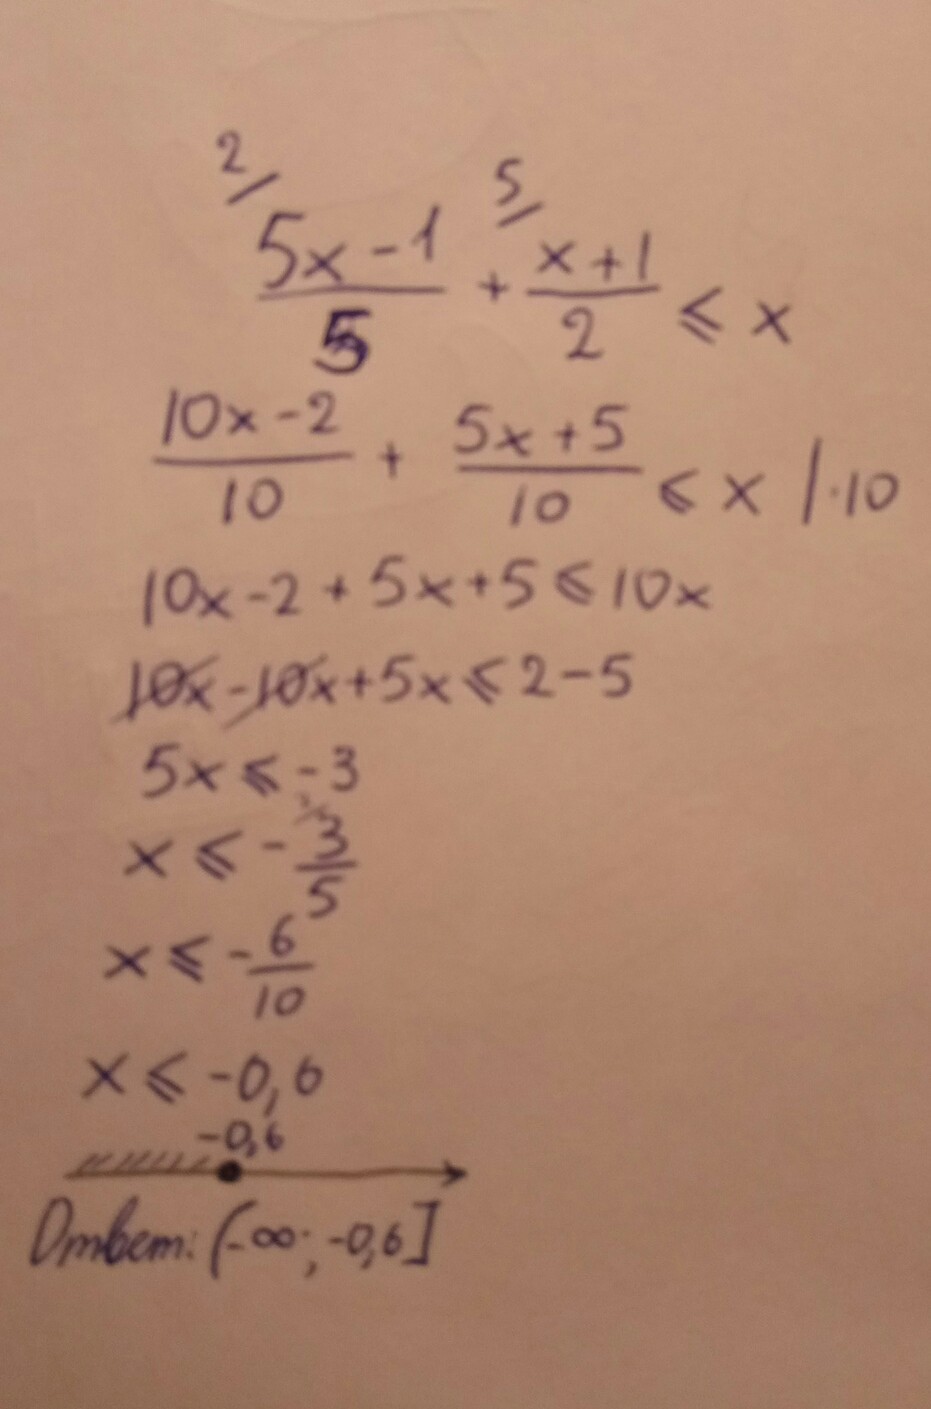 2/ 5/
5x-1/5 + x+1/2 ≤ x
10x-2/10 + 5x+5/10 ≤ x |·10
10x-2+5x+5≤10x
10x-10x+5x≤2-5
5x≤-3
x≤-3/5
x≤-6/10
x≤-0,6
-0,6
Ответ: (-∞; -0,6]